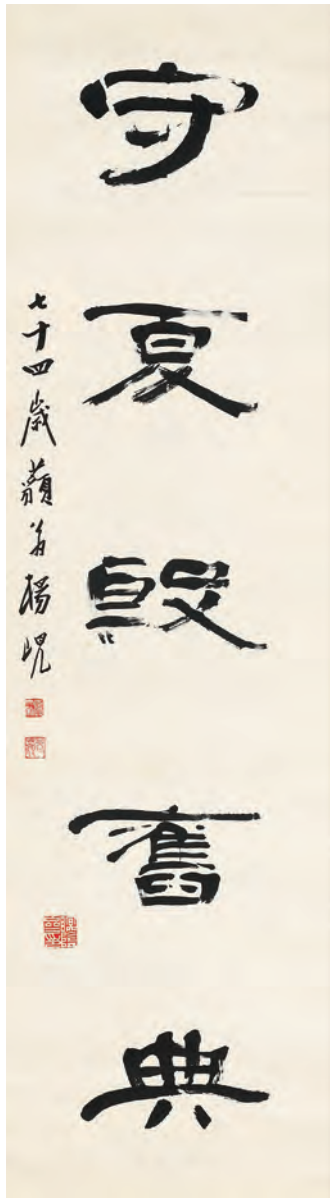 守夏殷舊典
七十四歲藐翁楊峴